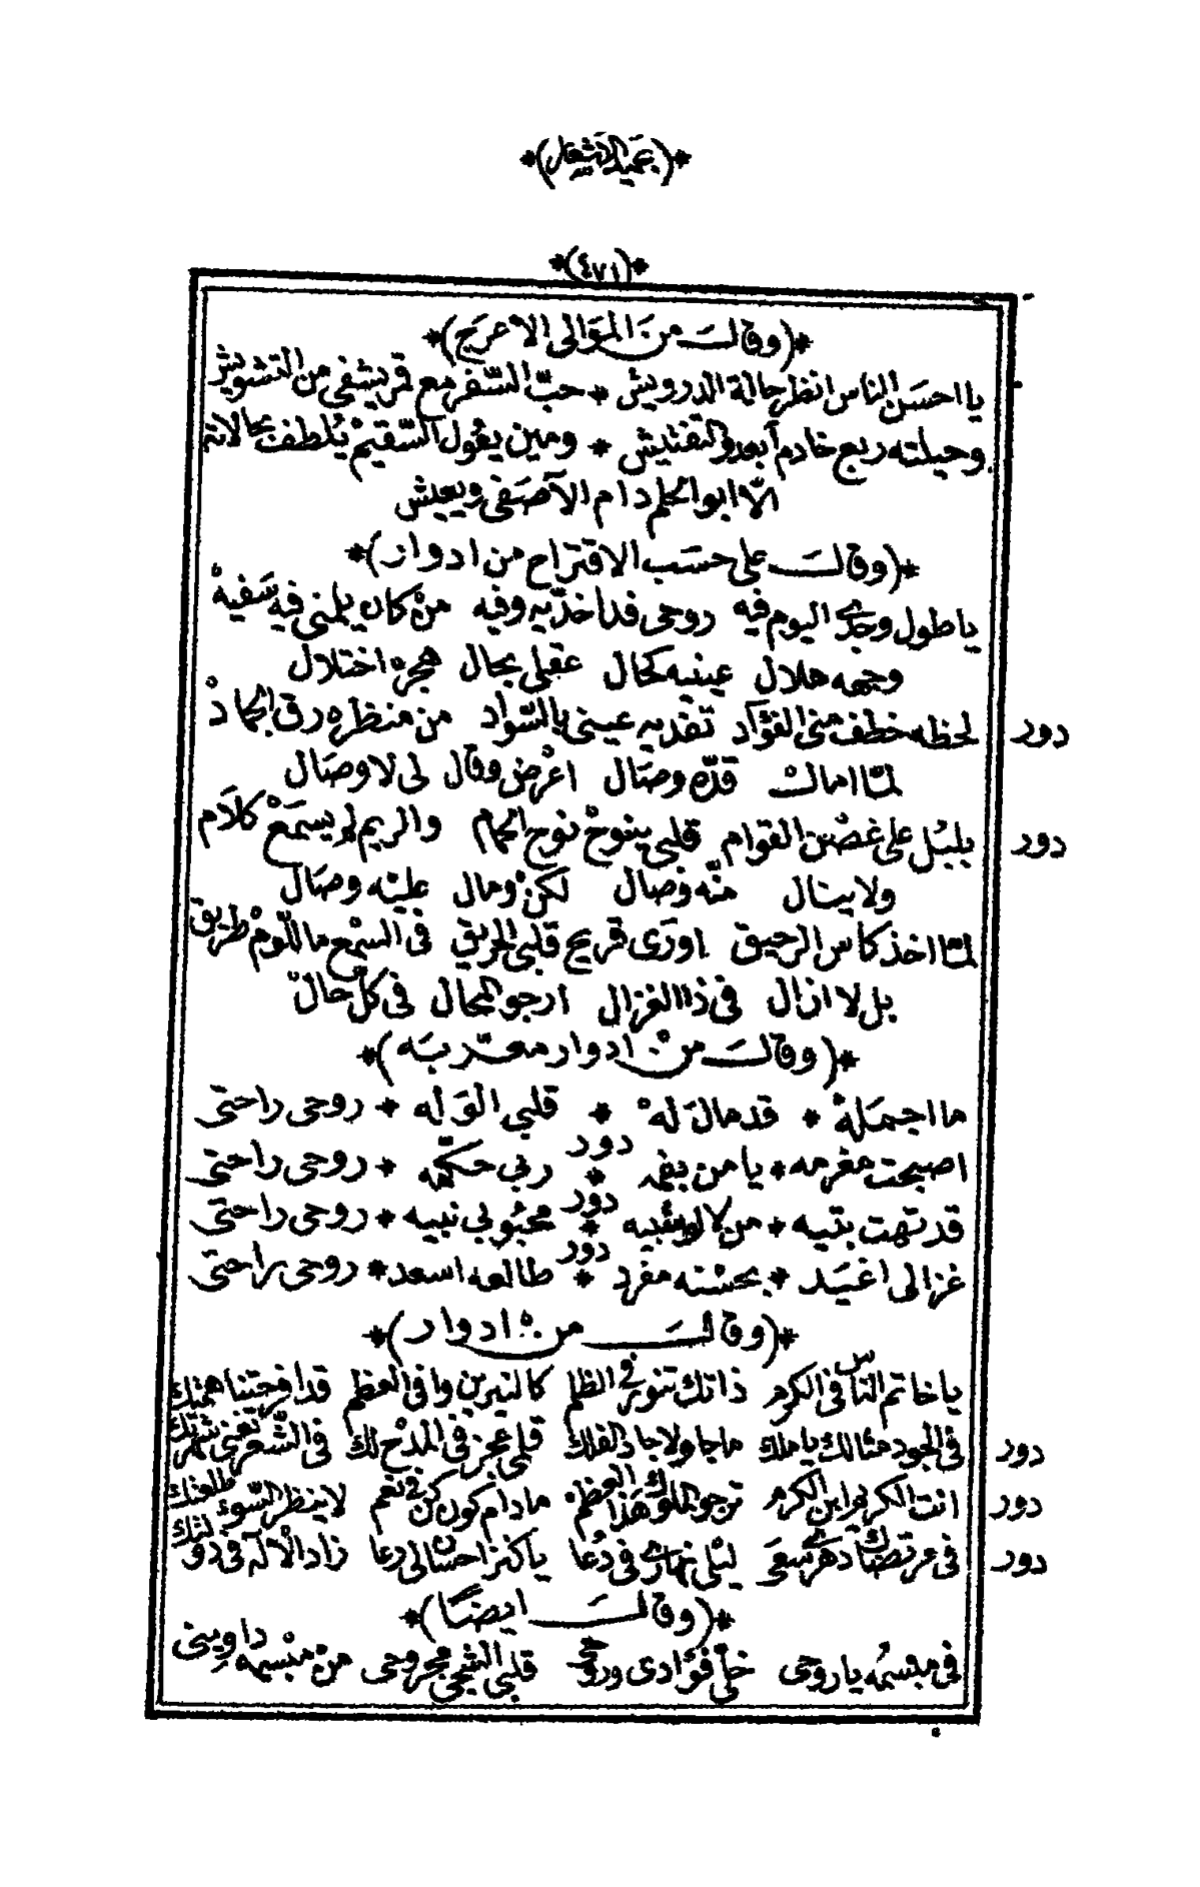 *(بحميد الاشعار)*
*(٤٧١)*
*(وقالت من الموالى الاعرج)*
يا احسن الناس انظر حالة الدرويش * حبّ السّفر مع قريشفى من التشويش
وحيلته ربع خادم أبعد والتفتيش * ومين يقول السّقيم يُلطف بحالاته
الّا ابو الحلم دام الآصفى ويعيش
*(وقالت على حسب الاقتراح من ادوار)*
ياطول وجدى اليوم فيه روحى فدا خدّيه وفيه من كان يلمنى فيه سَفيهْ
وجهه هلال عينيه كحال عقلى بحال هجره اختلال
دور لحظه خطف منى الفؤآد تفديه عينى بالسّواد من منظره رق الجمادْ
لمّا امالتْ قدّه وصَال اعْرض وقال لى لا وصَال
دور بلبُل على غصْن القوام قلبى ينوحْ نوح الحمام والريم لم يسمَعْ كلاَم
ولا ينال منّه وصال لكنْ ومال عليْه وصَال
لمّا اخذ كاس الرحيق اورَى قريح قلبى الحريق فى السمْع ما للّومْ طريق
بل لا ازال فى ذا الغزال ارجو المحال فى كلّ حالْ
*(وقالت منْ ادوار معرّبَه)*
ما اجمَلهْ * قد مالَ لهْ * قلبي الوَلِه * روحى راحتى
دور
اصبحت مغرمه * يا من بفمه * ربي حكّمه * روحى راحتى
دور
قد تهت بتيه * من لا لو شبيه * محبُوبي نبيه * روحى راحتى
دور
غزالى اغيَد * بحسْنه مفرد * طالعه اسعد * روحى راحتى
*(وقالت من ادوار)*
يا خاتم الناس فى الكرم ذاتك تنور فى الظلم كالنيرين وافى العظم قد افرحتنا همتك
دور فى الجود مثالك يا ملك ما جا ولا جاد الفلك قلمى عجز فى المدْح لك فى الشّعر تغنى شهرتك
دور انت الكريم ابن الكرم ترجو الملوك هذا العظمْ مادام كون كن فى نعم لا ينظر السّوء طلعتك
دور فى مرتضاك دهرى سَعَى ليْلى نهارى فى دُعا يا كنز احسان لى دعا زاد الْاله فى دولتك
*(وقالت ايضًا)*
فى مبسمُه يا روحى خلّى فؤادى وروحى قلبى الشّجى مجروحى منْ مبْسِمه داوينى